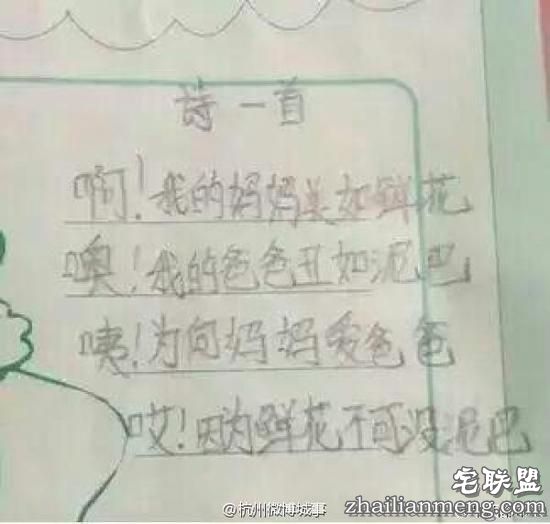 诗一首
啊!我的妈妈美如鲜花
噢!我的爸爸丑如泥巴
咦!为何妈妈爱爸爸
哎!因为鲜花不可没泥巴
@杭州微博城事
宅联盟
zhailianmeng.com